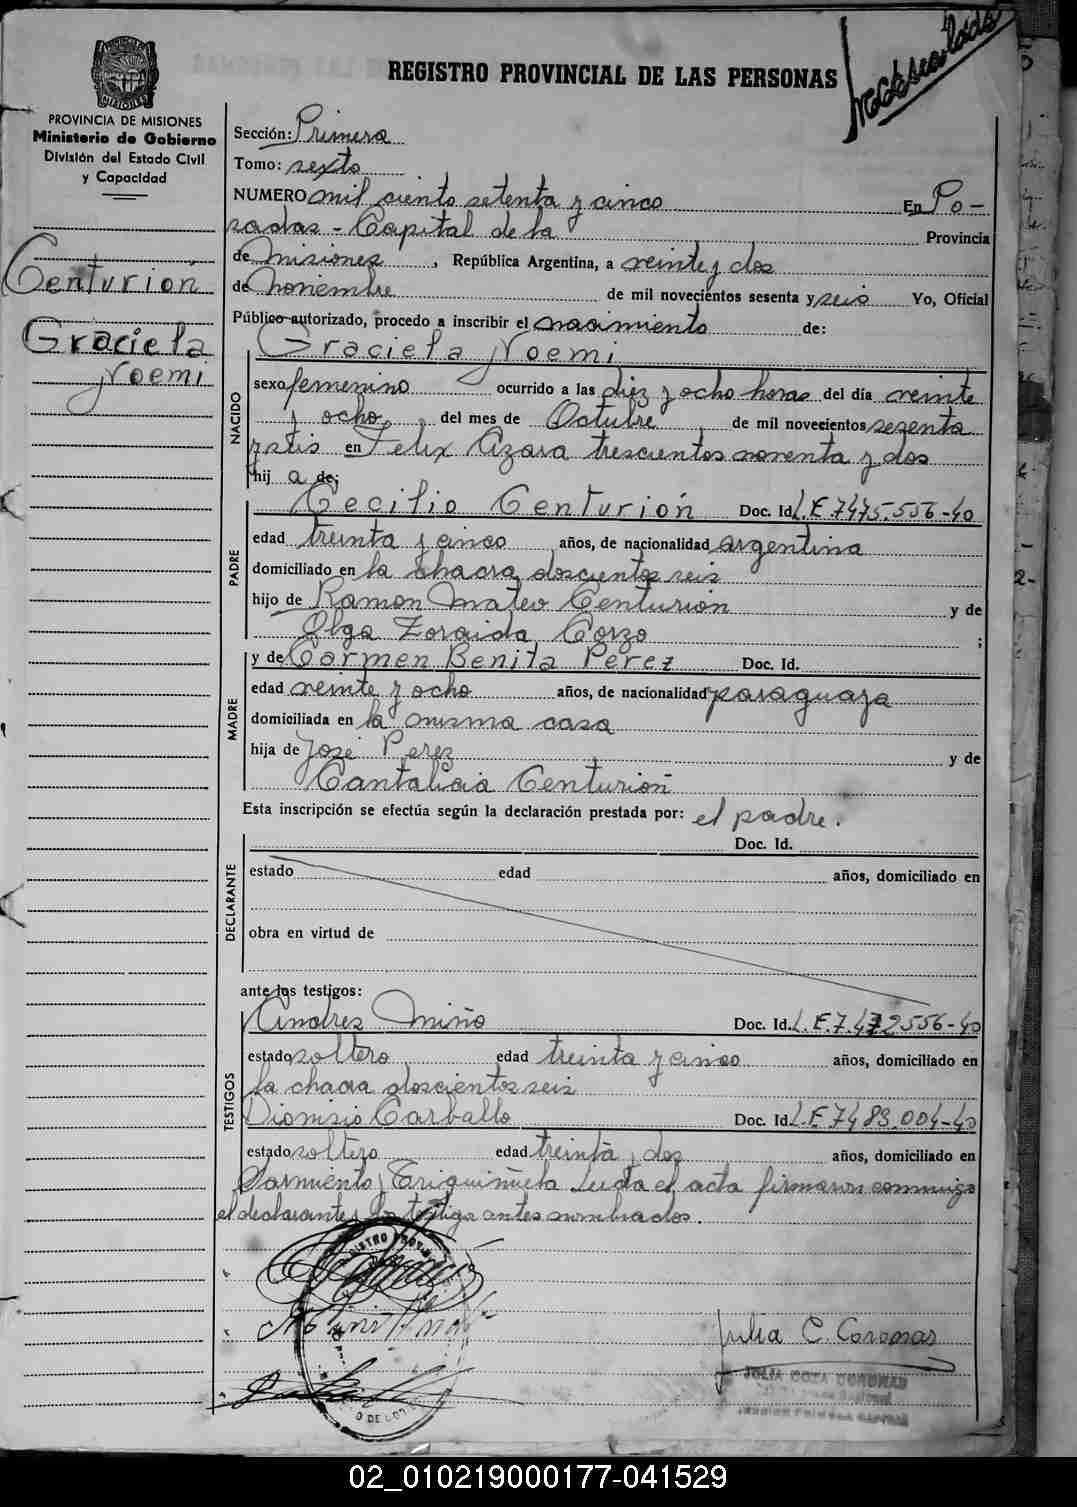 REGISTRO PROVINCIAL DE LAS PERSONAS
PROVINCIA DE MISIONES
Ministerio de Gobierno
División del Estado Civil
y Capacidad
Centurión
Graciela
Noemi
Sección: Primera
Tomo: sexto
NUMERO mil ciento setenta y cinco En Po-
sadas - Capital de la Provincia
de Misiones, República Argentina, a veinte y dos
de Noviembre de mil novecientos sesenta y seis Yo, Oficial
Público autorizado, procedo a inscribir el nacimiento de:
NACIDO
Graciela Noemi
sexo femenino ocurrido a las diez y ocho horas del día veinte
y ocho, del mes de Octubre, de mil novecientos sesenta
y seis en Felix Azara trescientos noventa y dos
hij a de:
PADRE
Cecilio Centurión Doc. Id. L.E. 7475.556-40
edad treinta y cinco años, de nacionalidad argentina
domiciliado en la chacra doscientos seis
hijo de Ramon Mateo Centurion y de
Olga Zoraida Corzo ;
MADRE
y de Carmen Benita Perez Doc. Id.
edad veinte y ocho años, de nacionalidad paraguaya
domiciliada en la misma casa
hija de José Perez y de
Cantalicia Centurión
Esta inscripción se efectúa según la declaración prestada por: el padre.
DECLARANTE
Doc. Id.
estado edad años, domiciliado en
obra en virtud de
ante los testigos:
TESTIGOS
Andres Miño Doc. Id. L.E. 7.472556-40
estado soltero edad treinta y cinco años, domiciliado en
la chacra doscientos seis
Dionisio Carballo Doc. Id. L.E. 7483.004-40
estado soltero edad treinta y dos años, domiciliado en
Sarmiento y Triquiñuela Leida el acta firmaron conmigo
el declarante y los testigos antes nombrados.
Julia C. Coronas
JULIA COZA CORONAS
02_010219000177-041529